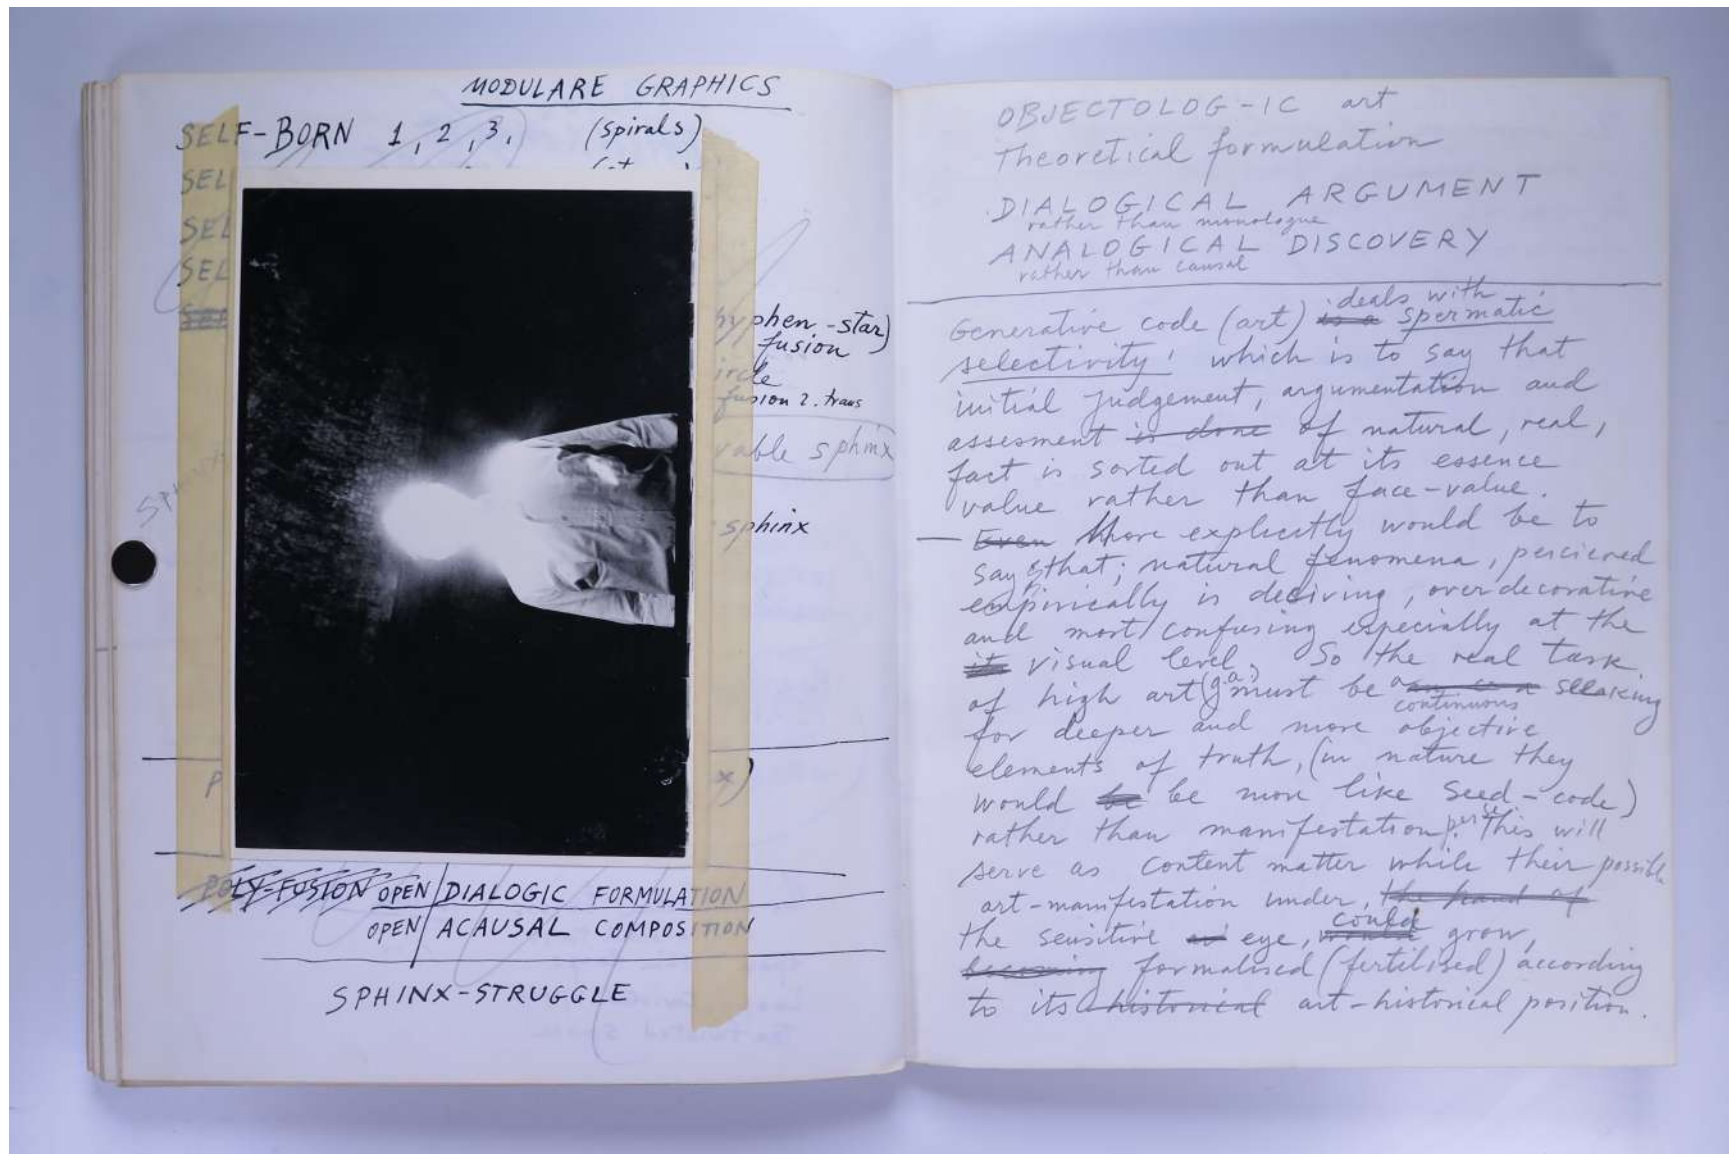 MODULARE GRAPHICS
SELF-BORN 1, 2, 3. (spirals)
SEL
SEL
SEL
hyphen-star)
fusion
ircle
fusion 2. trans
vable sphinx
sphinx
SPHINX
P x)
POLY-FUSION OPEN/DIALOGIC FORMULATION
OPEN/ACAUSAL COMPOSITION
SPHINX-STRUGGLE
OBJECTOLOG-IC art
Theoretical formulation
DIALOGICAL ARGUMENT
rather than monologue
ANALOGICAL DISCOVERY
rather than causal
deals with
Generative code (art) is a spermatic
selectivity! which is to say that
initial judgement, argumentation and
assesment is done of natural, real,
fact is sorted out at its essence
value rather than face-value.
— Even More explicitly would be to
say that; natural fenomena, percieved
empirically is deciving, over decorative
and most confusing especially at the
its visual level, So the real task
of high art (g.a.) must be a seeking
continuous
for deeper and more objective
elements of truth, (in nature they
would be be more like seed-code)
rather than manifestation perse. This will
serve as content matter while their possible
art-manifestation under, the hand of
the sensitive eye, would could grow,
becoming formalised (fertilised) according
to its historical art-historical position.